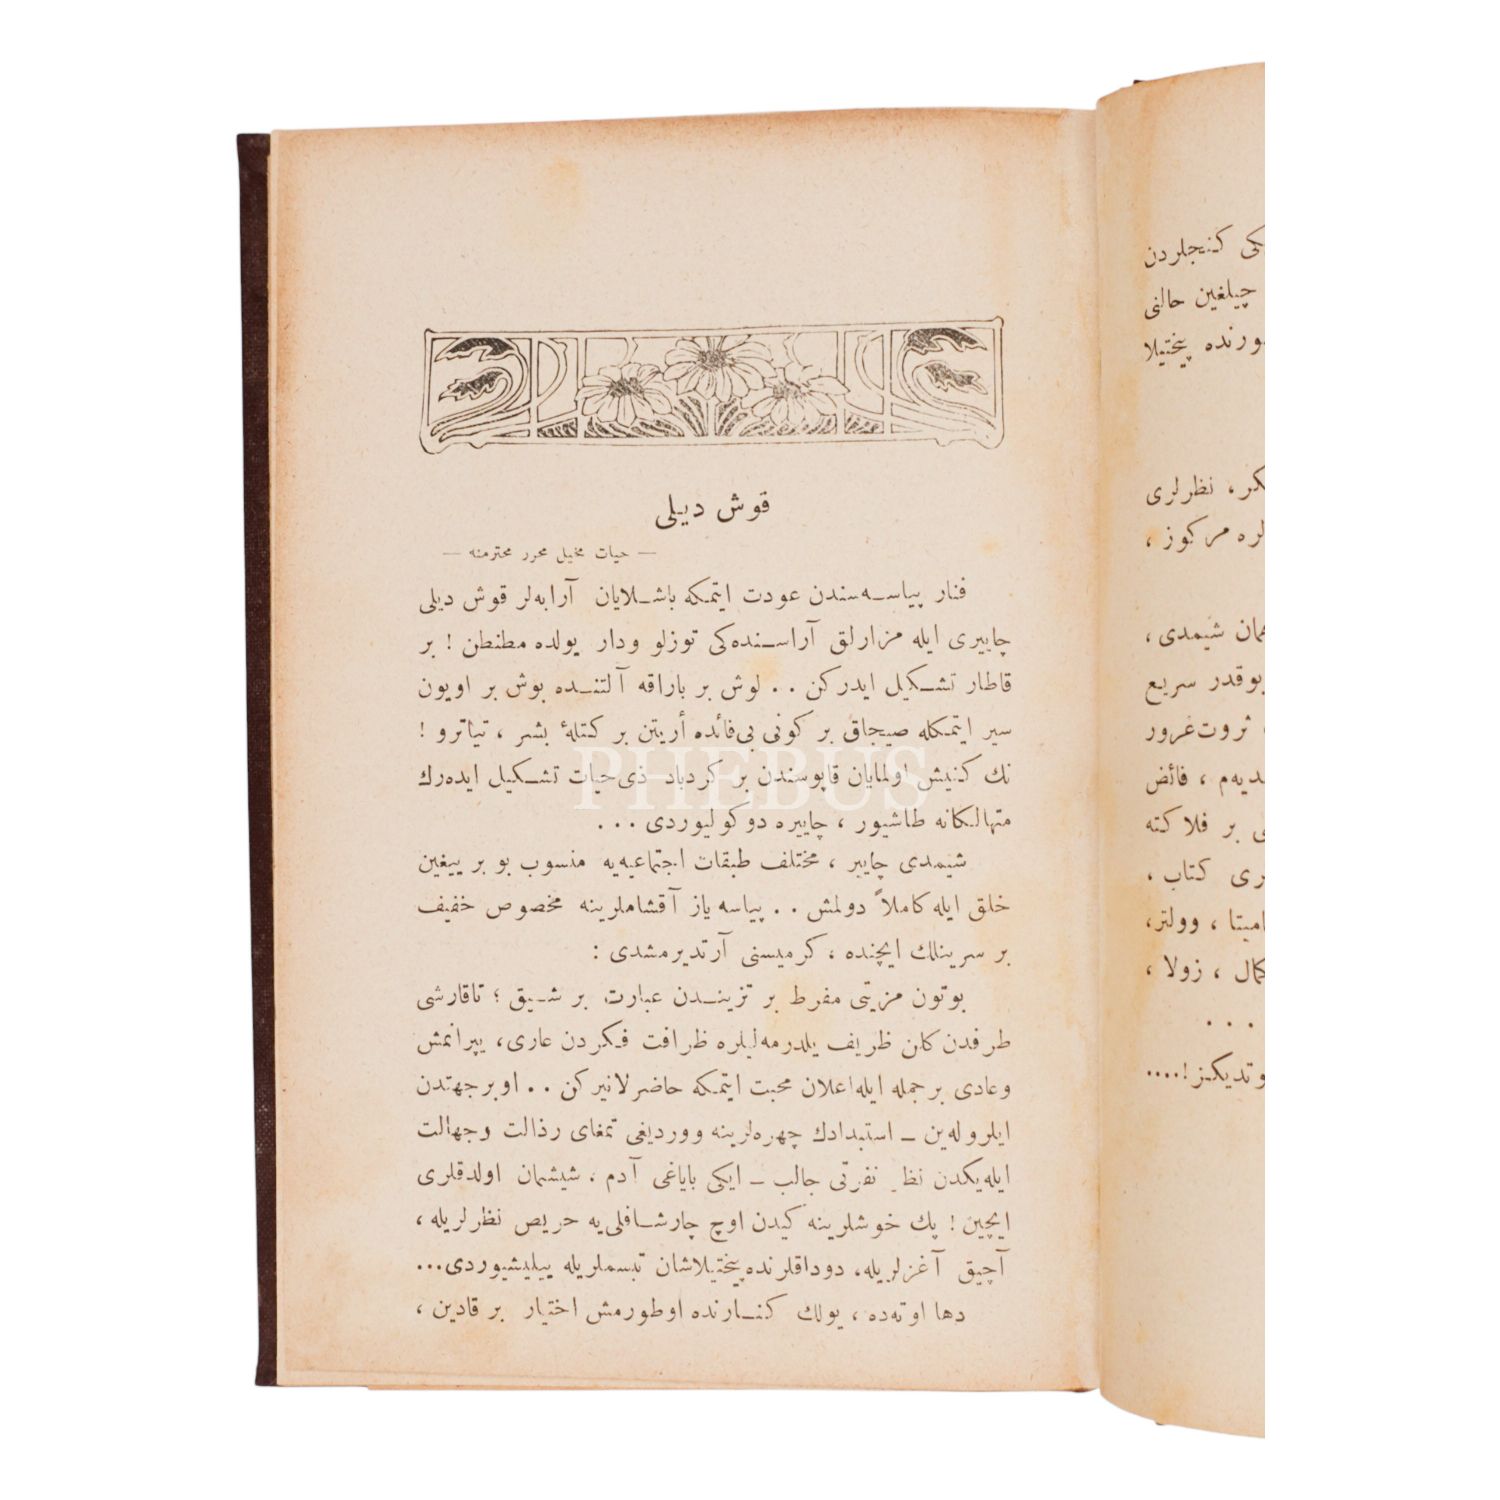 قوش ديلى
— حيات مخيل محرر محترمنه —
فنار پياسه‌سندن عودت ايتمكه باشلايان آرابه‌لر قوش ديلى
چاييرى ايله مزارلق آراسنده‌كى توزلو ودار يولده مطنطن ! بر
قاطار تشكيل ايدركن . . لوش بر باراقه آلتنده بوش بر اويون
سير ايتمكله صيجاق بر كونى بى‌فائده أريتن بر كتلهٔ بشر ، تياترو !
نك كنيش اولمايان قاپوسندن بر كردباد ذى‌حيات تشكيل ايده‌رك
متهالكانه طاشيور ، چاييره دوكوليوردى . . .
شيمدى چايير ، مختلف طبقات اجتماعيه‌يه منسوب بو بر ييغين
خلق ايله كاملاً دولمش . . پياسه ياز آقشاملرينه مخصوص خفيف
بر سرينلك ايچنده ، كرميسنى آرتديرمشدى :
بوتون مزيتى مفرط بر تزيندن عبارت بر شيق ؛ تاقارشى
طرفدن كلن ظريف يلدرمه‌ليلره ظرافت فكردن عارى، يپرانمش
وعادى بر جمله ايله اعلان محبت ايتمكه حاضرلانيركن . . اوبرجهتدن
ايلروله‌ين ــ استبدادك چهره‌لرينه ووردیغى تمغاى رذالت وجهالت
ايله‌يكدن نظر نفرتى جالب ــ ايكى باياغى آدم ، شيشمان اولدقلرى
ايچين ! پك خوشلرينه كيدن اوچ چارشافلى‌يه حريص نظرلريله ،
آچيق آغزلريله، دوداقلرنده پيختيلاشان تبسملريله ييليشيوردى...
دها اوته‌ده ، يولك كنارنده اوطورمش اختيار بر قادين ،
PHEBUS
كى كنجلردن
چيلغين حالنى
ورنده پيختيلا
كر ، نظرلرى
لره مركوز ،
مان شيمدى ،
بوقدر سريع
ثروت‌غرور
ديه‌م ، فائض
ى بر فلاكته
رى كتاب ،
اميتا ، وولتر،
كمال ، زولا ،
. . .
وتديكز !....